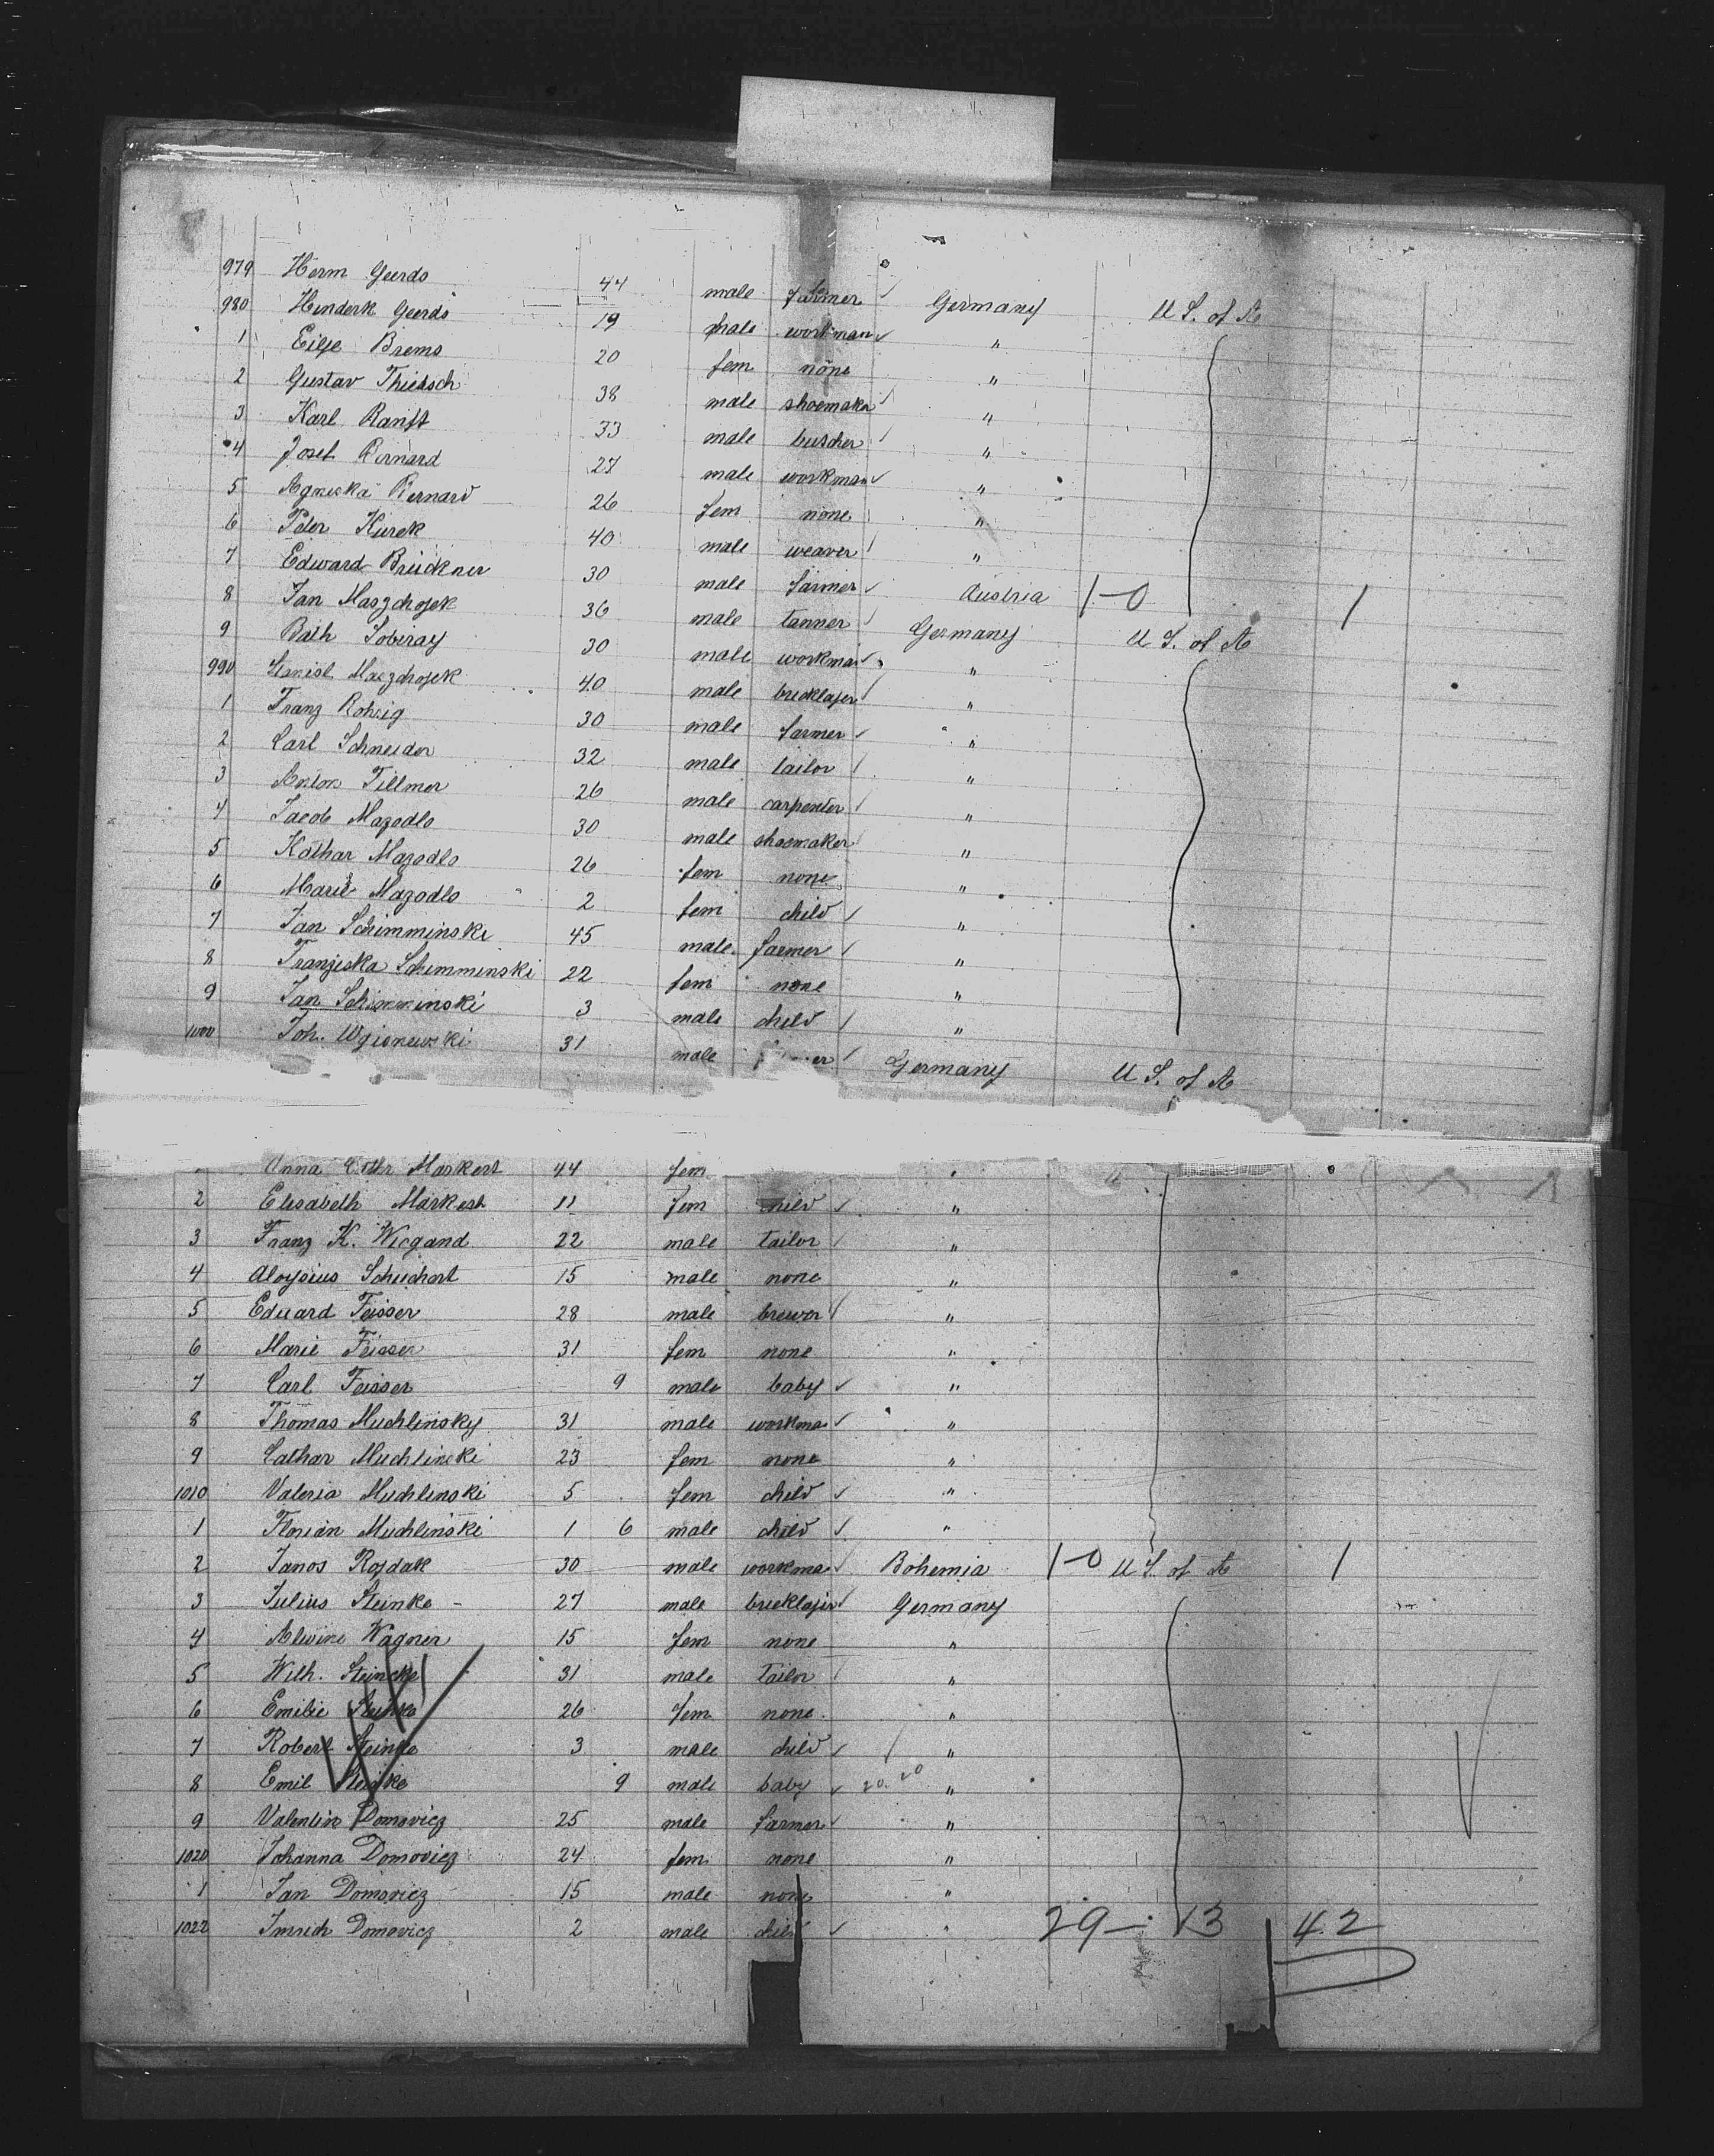 979 Herm Geerds 44 male farmer Germany U S. of A
980 Henderk Geerds 19 male workman "
1 Eilse Brems 20 fem none "
2 Gustav Thiersch 38 male shoemaker "
3 Karl Ranft 33 male butcher "
4 Josef Bernard 27 male workman "
5 Agneska Bernard 26 fem none "
6 Peter Kurek 40 male weaver "
7 Edward Bruckner 30 male farmer Austria 1-0 1
8 Jan Maszchojek 36 male tanner Germany U S. of A
9 Bath Sobiray 30 male workman "
990 Stanisl Maszchojek 40 male bricklajer "
1 Franz Rohrig 30 male farmer "
2 Carl Schneider 32 male tailor "
3 Anton Tillmer 26 male carpenter "
4 Jacob Mazodlo 30 male shoemaker "
5 Kathar Mazodlo 26 fem none "
6 Marie Mazodlo 2 fem child "
7 Jan Schimminski 45 male farmer "
8 Franziska Schimminski 22 fem none "
9 Jan Schimminski 3 male child "
1000 Joh. Wzisnewski 31 male Germany U S. of A
Anna Markert 44 fem "
2 Elisabeth Markert 11 fem child "
3 Franz K. Wiegand 22 male tailor "
4 Aloysius Schuchart 15 male none "
5 Eduard Feisser 28 male brewer "
6 Marie Feisser 31 fem none "
7 Carl Feisser 9 male baby "
8 Thomas Muchlinsky 31 male workman "
9 Cathar Muchlinski 23 fem none "
1010 Valeria Muchlinski 5 fem child "
1 Florian Muchlinski 1 6 male child "
2 Janos Rojdak 30 male workman Bohemia 1-0 U S. of A 1
3 Julius Steinke 27 male bricklajer Germany
4 Alwine Wagner 15 fem none "
5 Wilh. Steincke 31 male tailor "
6 Emilie Steinke 26 fem none "
7 Robert Steinke 3 male child "
8 Emil Steinke 9 male baby 20. 20 "
9 Valentin Domovicz 25 male farmer "
1020 Johanna Domovicz 24 fem none "
1 Jan Domovicz 15 male none "
1022 Imrich Domovicz 2 male child " 29 - 13 42